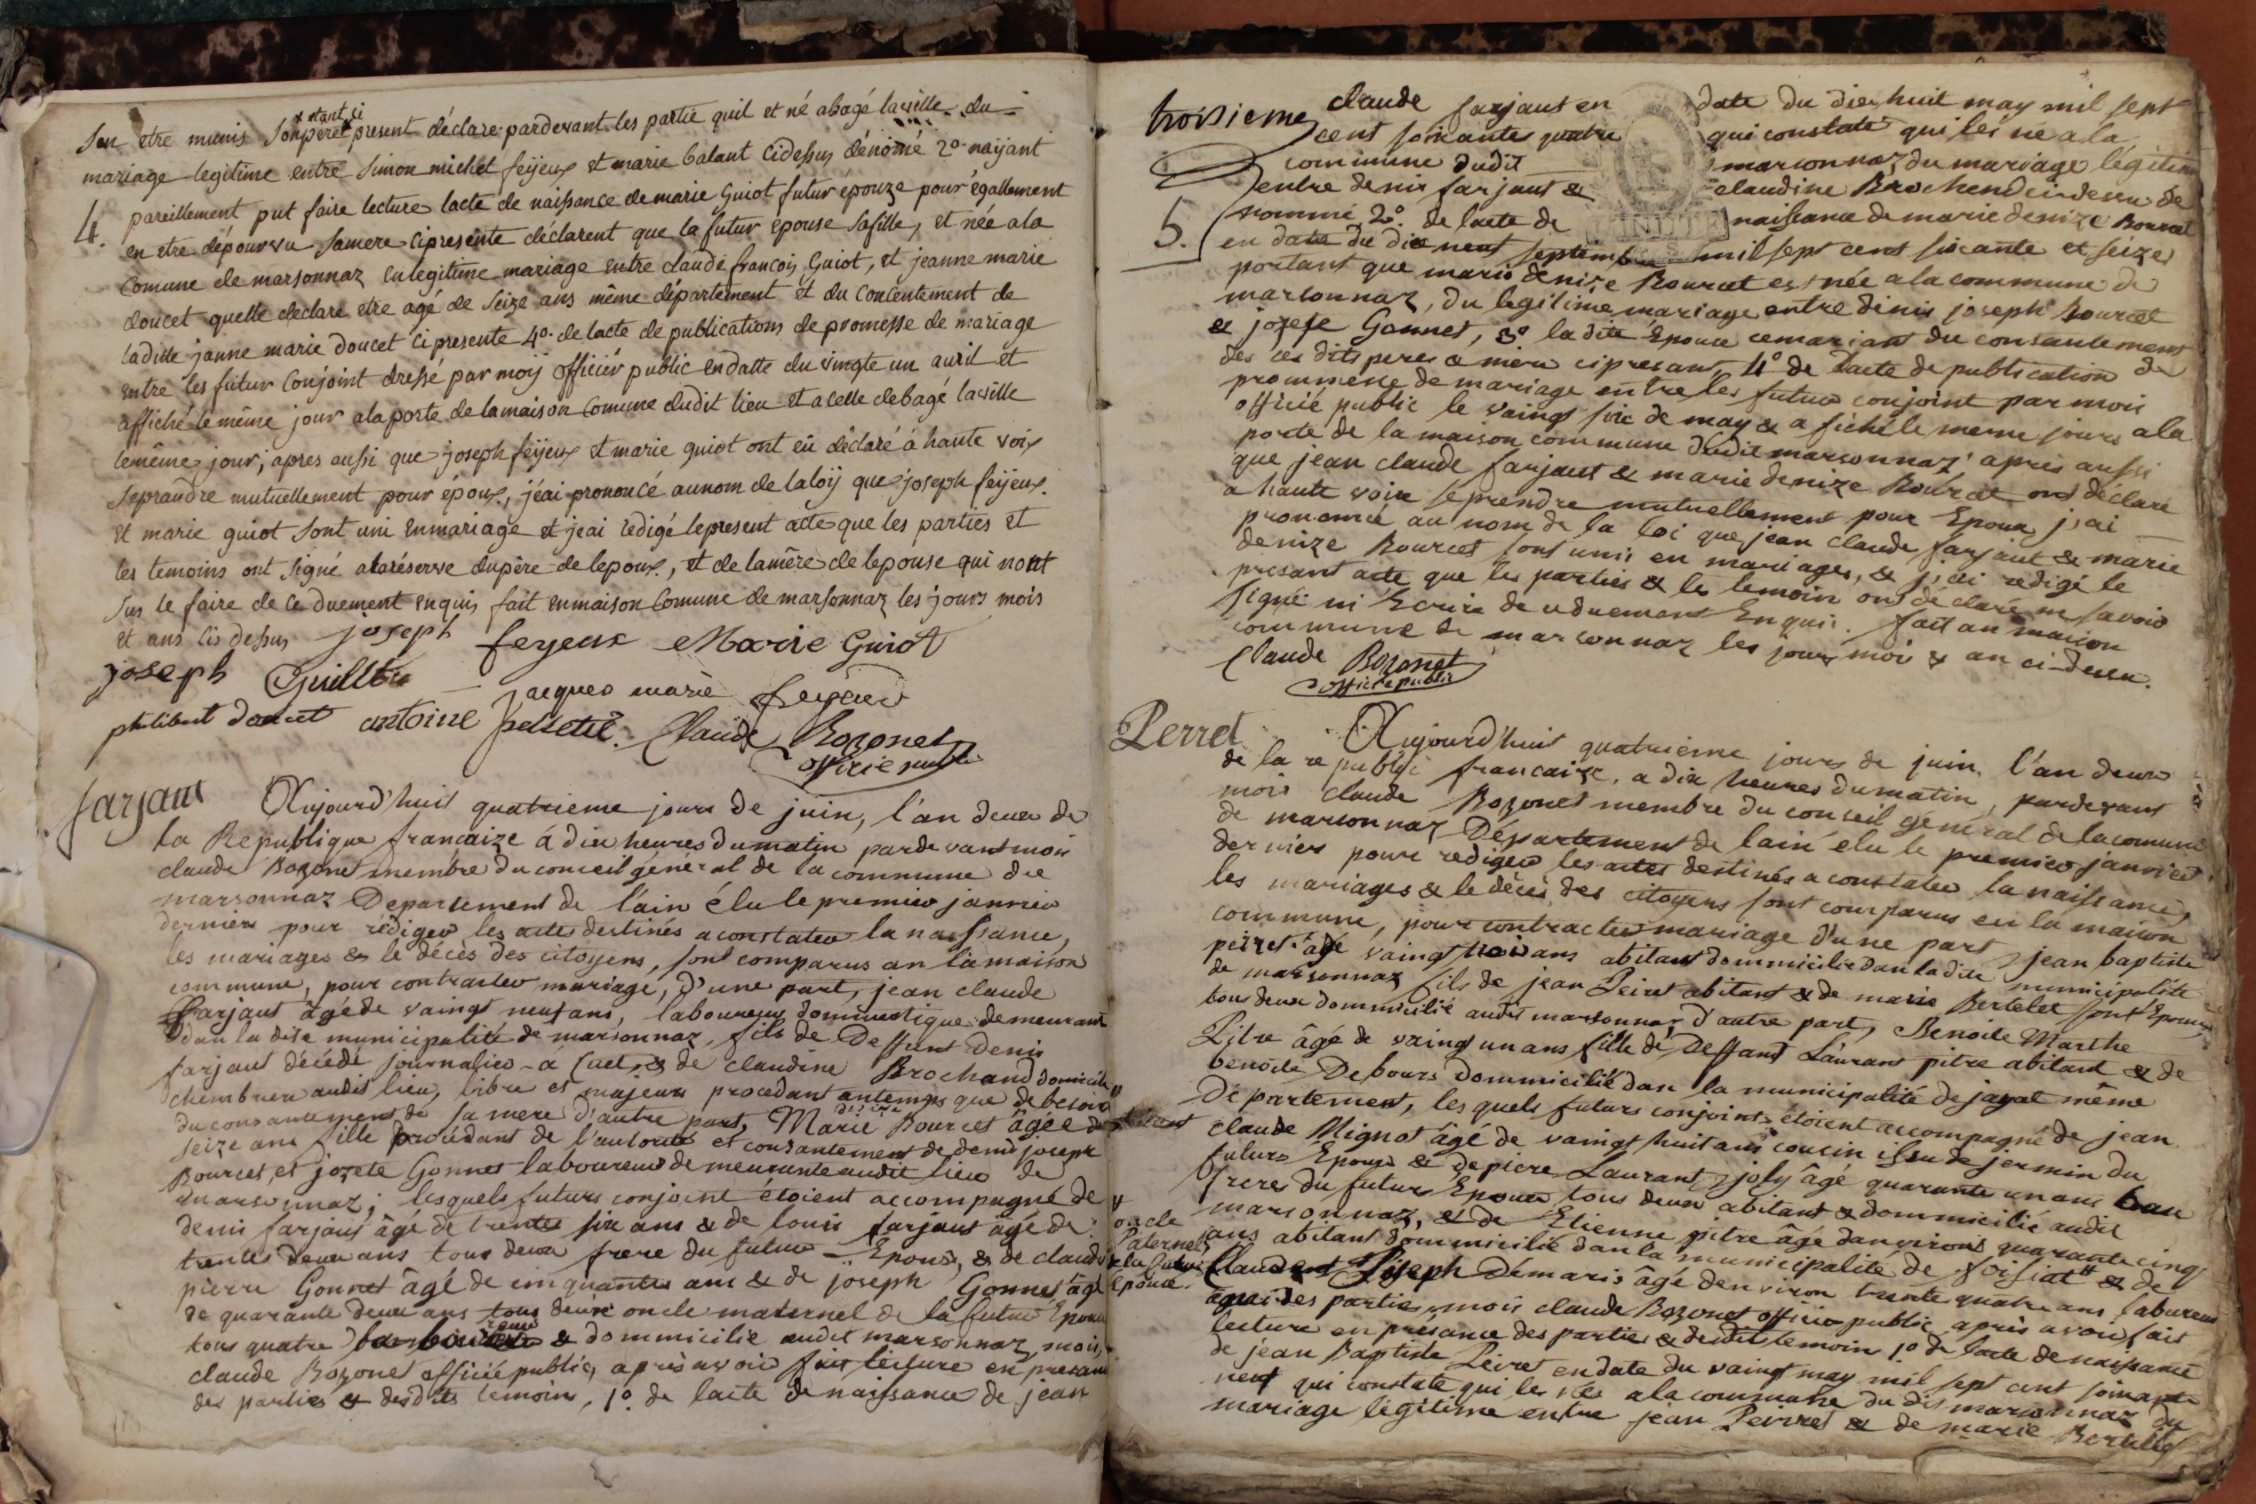 Sen etre munis Son pere etant ci present déclare pardevant les partie quil et né abagé laville du
mariage legitime entre Simon michel feÿeux et marie balant cidessus dénomé 2o. naÿant
pareillement put faire lecture lacte de naissance de marie Guiot futur épouze pour égallement
4. en etre dépourvu samere cipresente déclarent que la futur épouse safille, et née ala
Comune de marsonnaz en legitime mariage entre claude françois Guiot, et jeanne marie
doucet quelle declare etre agé de Seize ans même département et du concentement de
laditte janne marie doucet ci presente 4o. de lacte de publications de promesse de mariage
entre les futur Conjoint dressé par moÿ officiér public endatte du vingte un avril et
affiché le même jour ala porte de lamaison Comune dudit lieu et acelle debagé laville
lemême jour; apres aussi que joseph feÿeux et marie guiot ont eü déclaré à haute voix
Seprandre mutuellement pour époux, jéai prononcé aunom de laloÿ que joseph feÿeux
et marie guiot sont uni enmariage et jeai redigé lepresent acte que les parties et
les temoins ont signé alaréserve dupère de lepoux, et de lamère de lepouse qui nont
Sus le faire de ce duement enquis fait enmaison Comune de marsonnaz les jours mois
et ans cis dessus joseph feyeux Marie Guiot
joseph Guillot jacques marie feyeux
philibert doucet antoine Claude Bozonet
officie public
farjaut Aujourd'huit quatrieme jours de juin, l'an deux de
la Republique francaize à dix heures dumatin pardevant moi
claude Bozonet membre du conseil général de la commune de
marsonnaz Departement de l'ain élu le premier janvier
dernier pour rédiger les actes destinés a constater la naissance,
les mariages & le décès des citoyens, sont comparus an la maison
commune, pour contracter mariage, d'une part, jean claude
farjaut âgé de vaingt neuf ans, laboureur dommestique demeurant
dan la dite municipalité de marsonnaz, fils de Deffunt Denis
farjaut décédé journalier à Cuet, & de claudine Brochand domicilié
chembrier audit lieu, libre et majeur procedant antemps que de besoin
du consantement de sa mere d'autre part, Marie denize Bourcet âgée de
seize ans fille procédant de l'autorité et consantement de denis joseph
Bourcet, et jozete Gonnet laboureur demeurante audit lieu de
marsonnaz; lesquels futurs conjoint étoient accompagné de
denis farjaut âgé de trente six ans & de louis farjaut âgé de
trente deux ans tous deux frere du futur Epoux, & de claude
pierre Gonnet âgé de cinquante ans & de joseph Gonnet âgé
de quarante deux ans tous deux oncle maternel de la futur Epouse
tous quatre & dommicilié audit marsonnaz, moi
claude Bozonet officié public, après avoir fait lecture en presance
des parties & desdits temoin, 1o. de lacte de naissance de jean
troisieme claude farjaut en date du dix huit may mil sept
cent soixante quatre qui constate qui les né a la
commune dudit marsonnaz, du mariage légitime
entre denis farjaut & claudine Brochend ci desus de
nommé 2o. de lacte de naissance de marie denize Bourcet
5. en date du dix neuf septembre mil sept cent soixante et seize
portant que marie denize Bourcet est née a la commune de
marsonnaz, du legitime mariage entre denis joseph Bourcet
& jozefe Gonnet, 3o la dite épouse cemariant du consantement
des ces dits peres & mere cipresant, 4o de lacte de publication de
prommesse de mariage entre les futur conjoint par moi
officié public le vaingt six de may & a fiché le meme jours a la
porte de la maison commune dudit marsonnaz, après aussi
que jean claude farjaut & marie denize Bourcet ons déclaré
a haute voix seprendre mutuellement pour Epoux j'ai
prononcé au nom de la loi que jean claude farjaut & marie
denize Bourcet sont unis en mariages, & j'ai redigé le
presant acte que les parties & les temoin ons déclaré ne savoir
signé ni Ecrire de ce duemant Enquis. fait an maison
commune de marsonnaz les jours mois & an ci-desu.
Claude Bozonet
officie public
Perret Aujourd'huit quatrieme jours de juin, l'an deux
de la republi francaize, a dix heures dumatin, pardevant
moi claude Bozonet membre du conseil général de lacomune
de marsonnaz Département de lain élu le premier janvier
dernier pour rediger les actes destinés a constater la naissance,
les mariages & le décès des citoyens sont comparus en la maison
commune, pour contracter mariage d'une part, jean baptiste
peiret âgé vaingt trois ans abitant dommicilié dan la dite municipalité
de marsonnaz fils de jean Peiret abitant & de marie Bertelet sont Epouse
tou deux dommicilié audit marsonnaz, d'autre part, Benoite Marthe
Pitre âgé de vaingt un ans fille de Deffant Laurant pitre abitant & de
benoite Debours dommicilié dan la municipalité de jayat même
Département, les quels futurs conjoints étoient accompagné de jean
claude Mignot âgé de vaingt huit ans cousin issu de jermin du
futurs Epoux & de piere Laurant joly âgé quarante un ans beau
frere du futurs Epoux tous deux abitant & dommicilié audit
marsonnaz, & de Etienne pitre âgé danviront quarante cinq
oncle
paternel
de la future
Epouse.
ans abitant dommicilié dan la municipalité de foisiat & de
Claude Joseph Démaris âgé denviron trente quatre ans laboureur
amai des parties, moi claude Bozonet officie public après avoir fait
lecture en présance des parties & desdits temoin 1o de lacte de naissance
de jéan Baptiste Peiret endate du vaingt may mil sept cent soixante
neuf qui constate qui les née a la commune du dit marsonnaz du
mariage légitime entre jean Peirret & de marie Bertellet